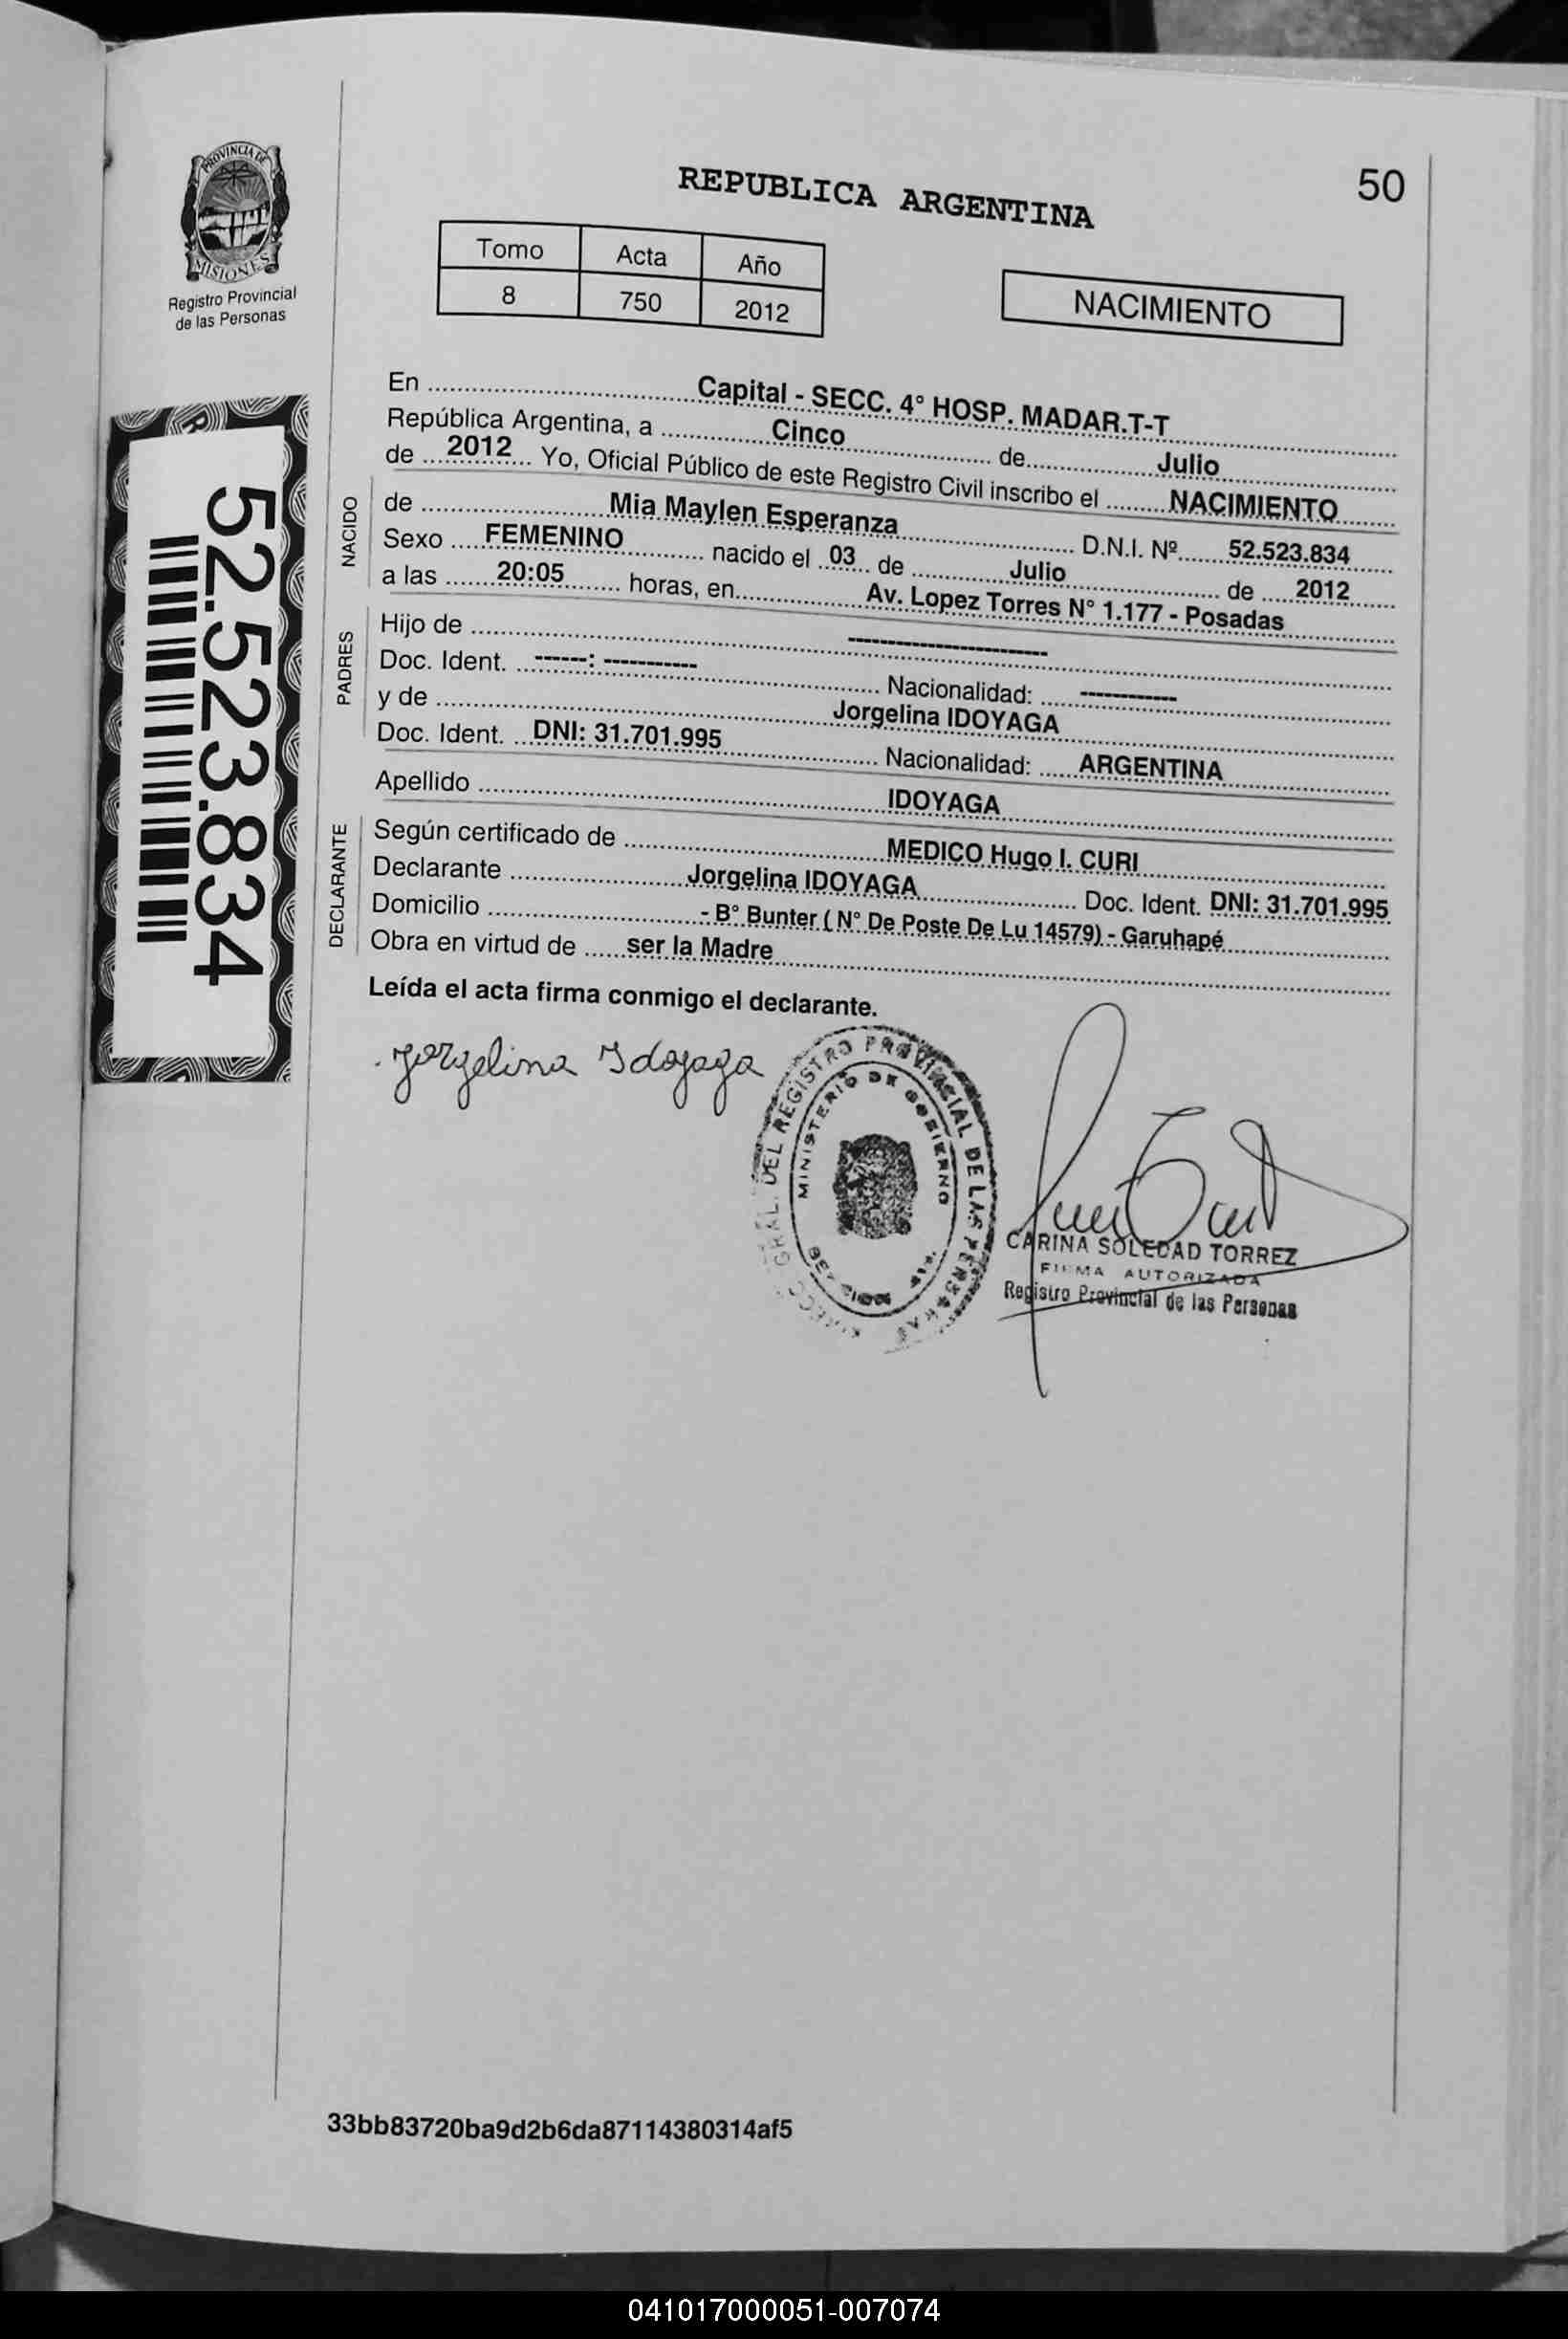 50
PROVINCIA DE
MISIONES
Registro Provincial
de las Personas
REPUBLICA ARGENTINA
Tomo Acta Año
8 750 2012
NACIMIENTO
52.523.834
En Capital - SECC. 4° HOSP. MADAR.T-T
República Argentina, a Cinco de Julio
de 2012 Yo, Oficial Público de este Registro Civil inscribo el NACIMIENTO
NACIDO
de Mia Maylen Esperanza D.N.I. Nº 52.523.834
Sexo FEMENINO nacido el 03 de Julio de 2012
a las 20:05 horas, en Av. Lopez Torres N° 1.177 - Posadas
PADRES
Hijo de --------------------
Doc. Ident. ------: ----------- Nacionalidad: ------------
y de Jorgelina IDOYAGA
Doc. Ident. DNI: 31.701.995 Nacionalidad: ARGENTINA
Apellido IDOYAGA
DECLARANTE
Según certificado de MEDICO Hugo I. CURI
Declarante Jorgelina IDOYAGA Doc. Ident. DNI: 31.701.995
Domicilio - B° Bunter ( N° De Poste De Lu 14579) - Garuhapé
Obra en virtud de ser la Madre
Leída el acta firma conmigo el declarante.
Jorgelina Idoyaga
GRAL. DEL REGISTRO PROVINCIAL DE LAS PERSONAS
MINISTERIO DE GOBIERNO
CARINA SOLEDAD TORREZ
FIRMA AUTORIZADA
Registro Provincial de las Personas
33bb83720ba9d2b6da87114380314af5
041017000051-007074